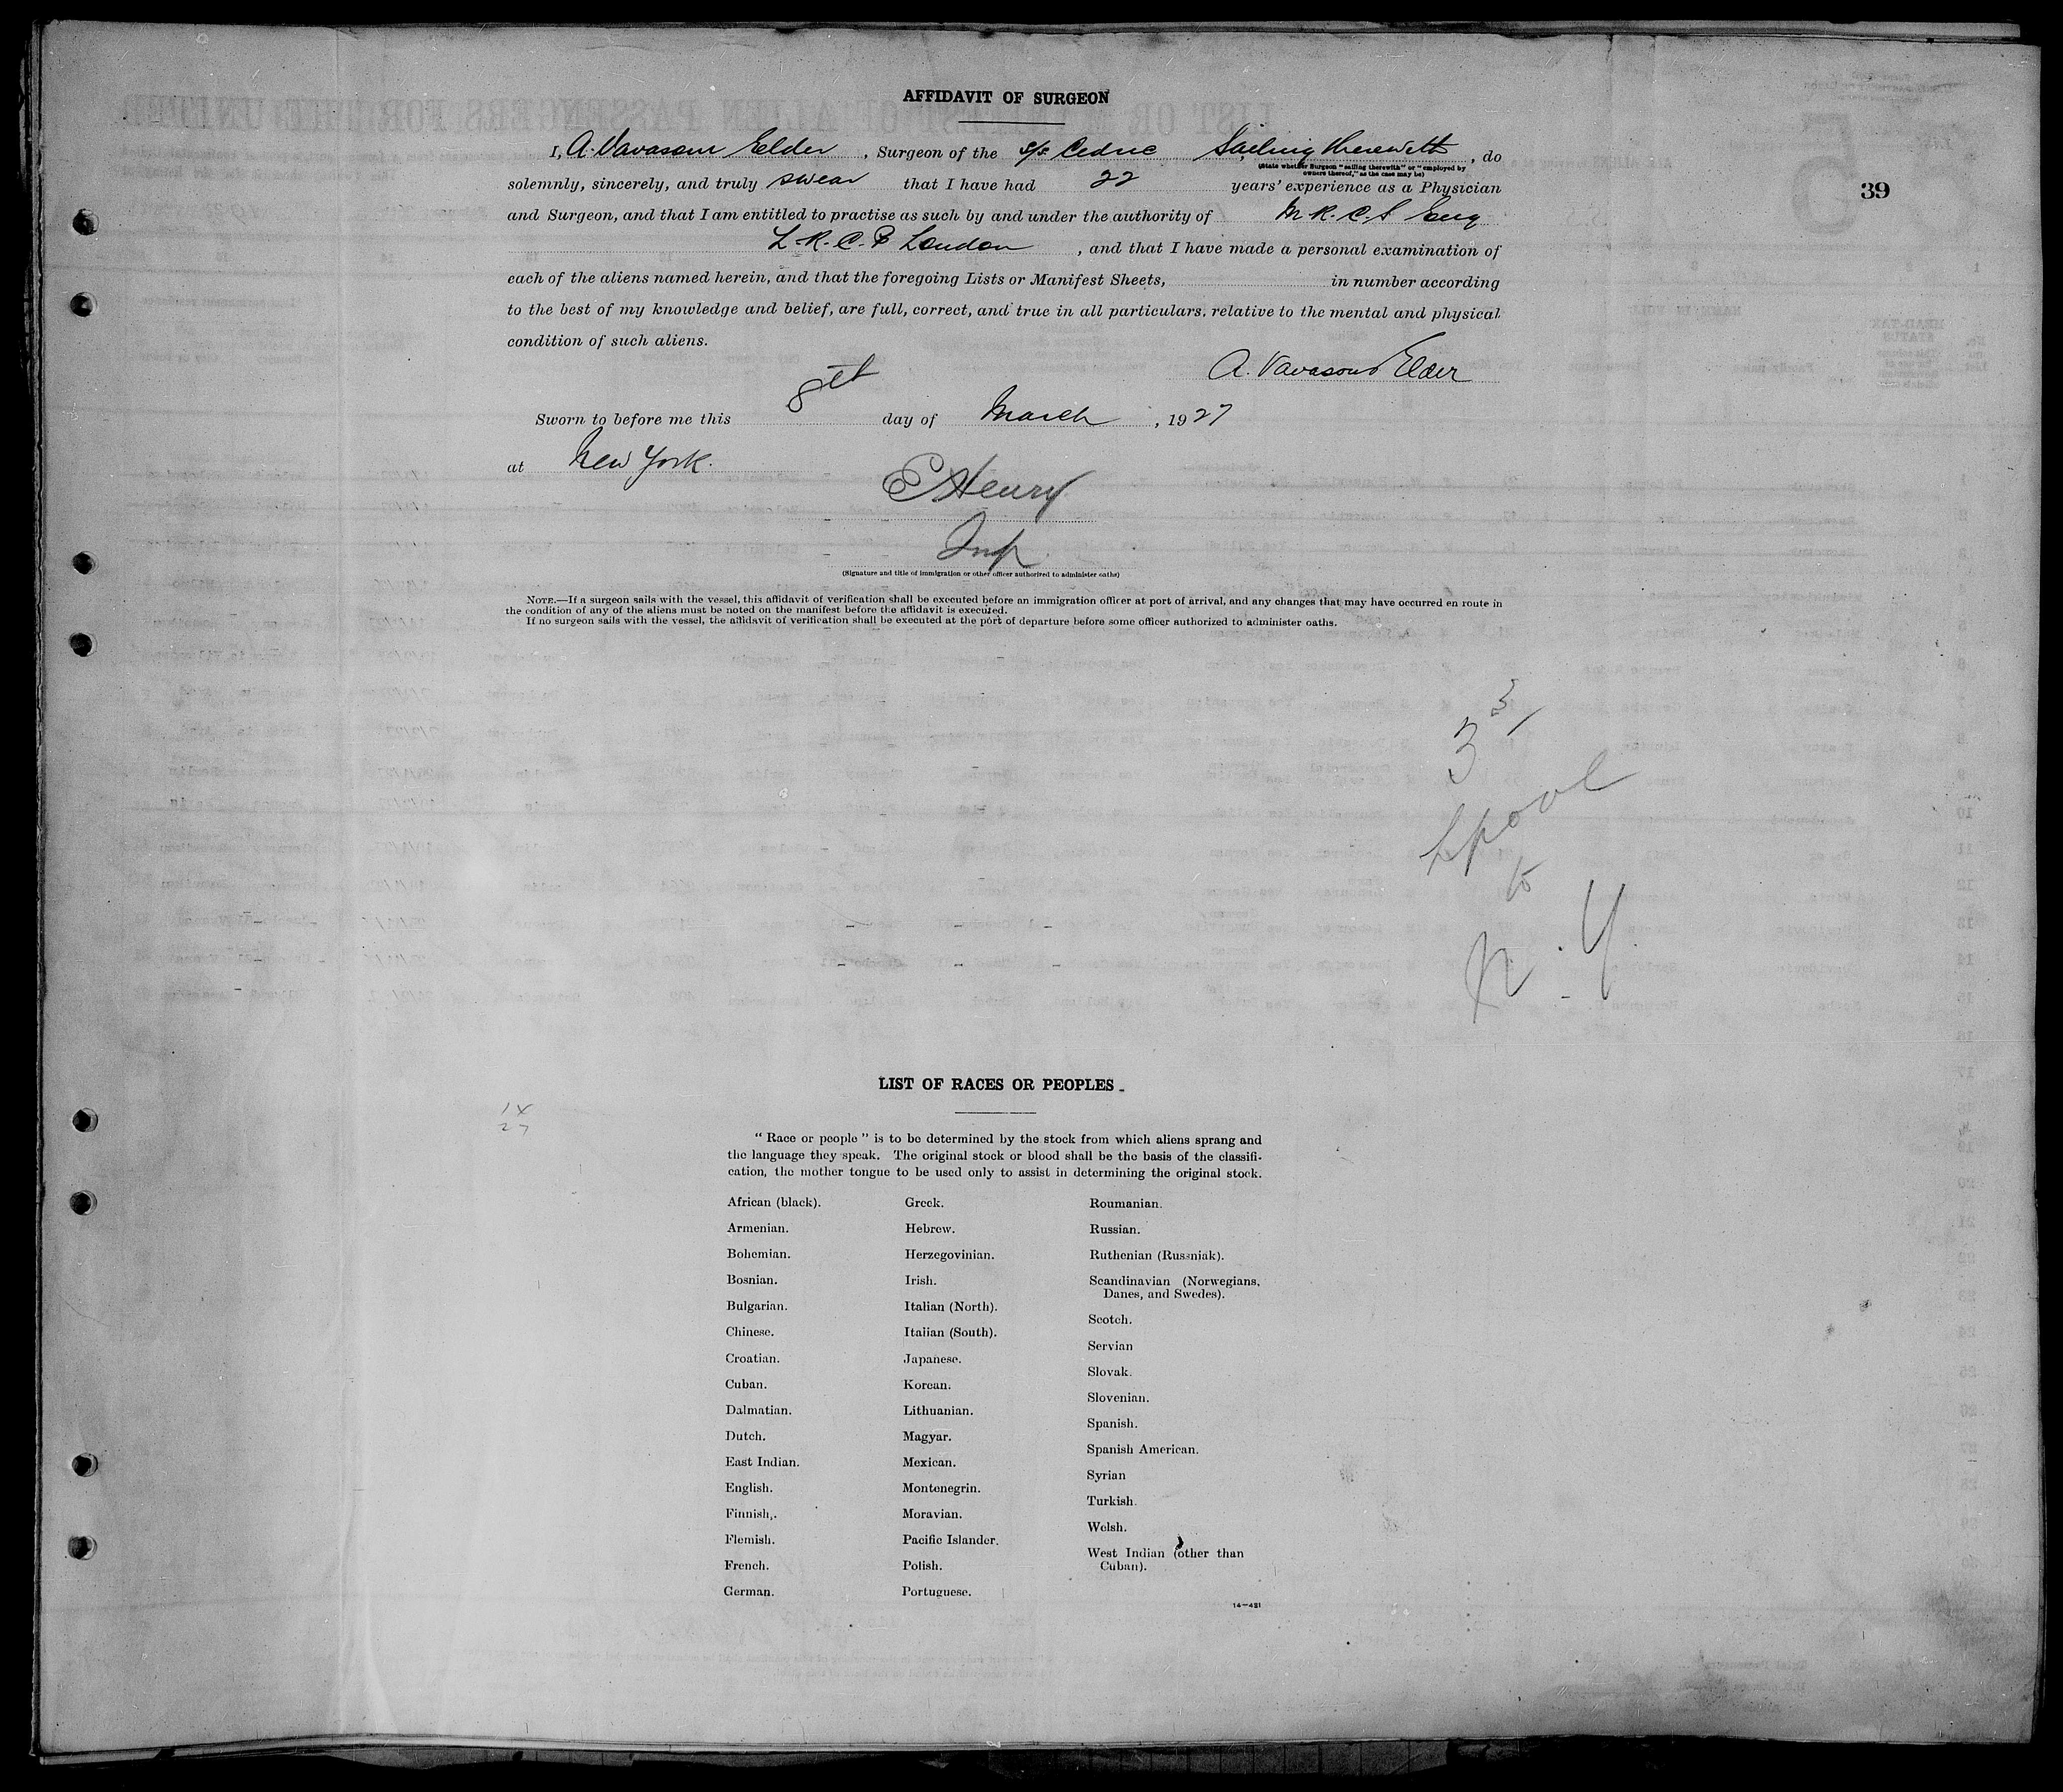 AFFIDAVIT OF SURGEON
I, A. Vavasour Elder, Surgeon of the s/s Cedric Sailing therewith, do
(State whether Surgeon "sailing therewith" or "employed by
owners thereof," as the case may be)
solemnly, sincerely, and truly swear that I have had 22 years' experience as a Physician
39
and Surgeon, and that I am entitled to practise as such by and under the authority of M.R.C.S. Eng
L.R.C.P London, and that I have made a personal examination of
each of the aliens named herein, and that the foregoing Lists or Manifest Sheets, in number according
to the best of my knowledge and belief, are full, correct, and true in all particulars, relative to the mental and physical
condition of such aliens.
A. Vavasour Elder
Sworn to before me this 8th day of March, 1927
at New York.
E Henry
Insp
(Signature and title of immigration or other officer authorized to administer oaths)
NOTE.—If a surgeon sails with the vessel, this affidavit of verification shall be executed before an immigration officer at port of arrival, and any changes that may have occurred en route in
the condition of any of the aliens must be noted on the manifest before the affidavit is executed.
If no surgeon sails with the vessel, the affidavit of verification shall be executed at the port of departure before some officer authorized to administer oaths.
3
3/
Lpool
to
N.Y.
LIST OF RACES OR PEOPLES
1X
27
"Race or people" is to be determined by the stock from which aliens sprang and
the language they speak. The original stock or blood shall be the basis of the classifi-
cation, the mother tongue to be used only to assist in determining the original stock.
African (black).
Armenian.
Bohemian.
Bosnian.
Bulgarian.
Chinese.
Croatian.
Cuban.
Dalmatian.
Dutch.
East Indian.
English.
Finnish.
Flemish.
French.
German.
Greek.
Hebrew.
Herzegovinian.
Irish.
Italian (North).
Italian (South).
Japanese.
Korean.
Lithuanian.
Magyar.
Mexican.
Montenegrin.
Moravian.
Pacific Islander.
Polish.
Portuguese.
Roumanian.
Russian.
Ruthenian (Russniak).
Scandinavian (Norwegians,
Danes, and Swedes).
Scotch.
Servian
Slovak.
Slovenian.
Spanish.
Spanish American.
Syrian
Turkish.
Welsh.
West Indian (other than
Cuban).
14—421